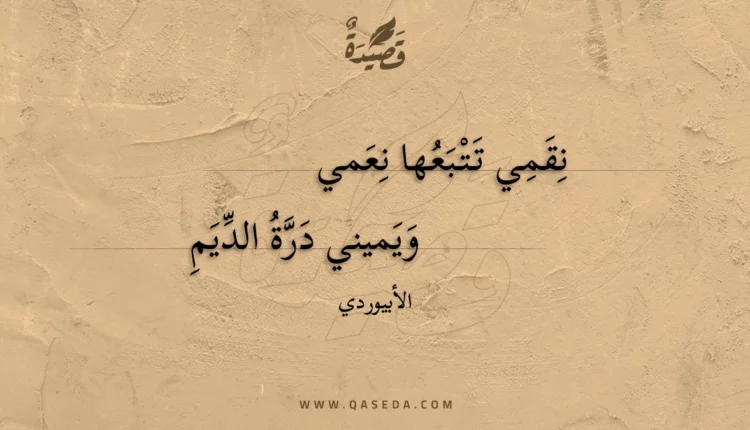 قَصِيدَةٌ
نِقَمِي تَتْبَعُها نِعَمي
وَيَميني دَرَّةُ الدِّيَمِ
الأبيوردي
WWW.QASEDA.COM